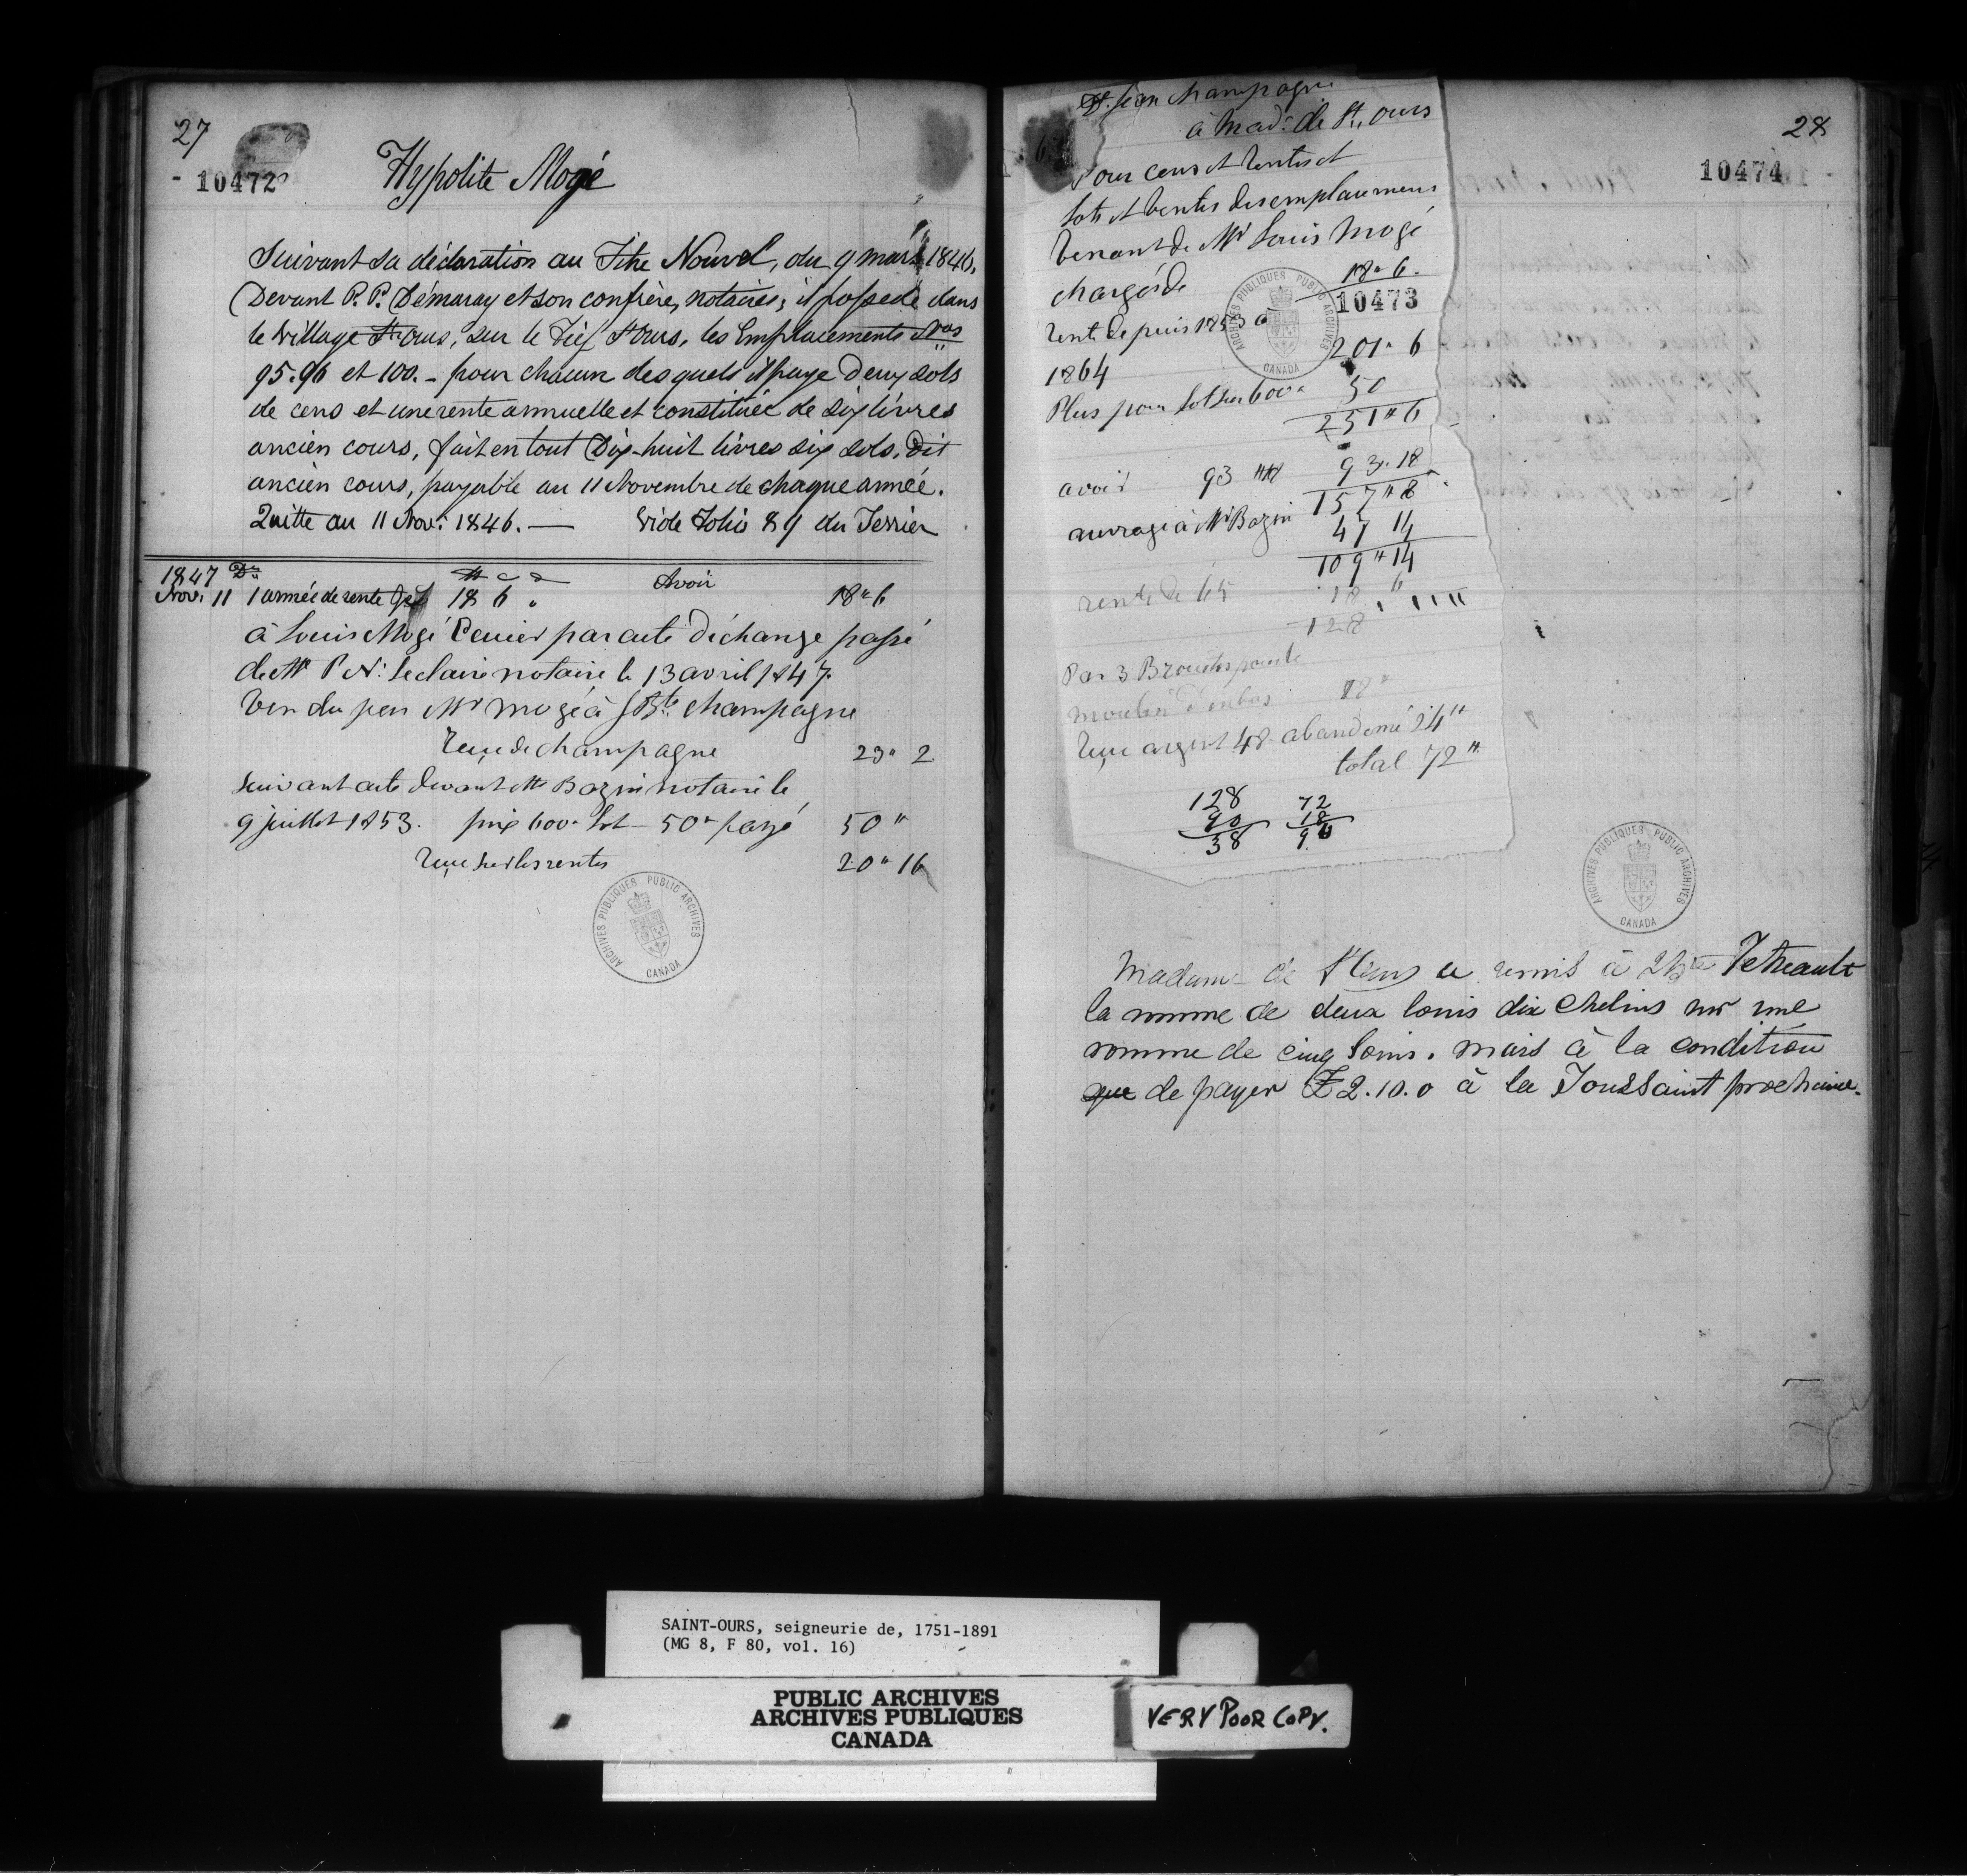 27
10472
Hypolite Mogé
Suivant sa déclaration au Titre Nouvel, du 9 mars 1846,
Devant P. P. Démaray et son confrère, notaires; il possede dans
le village St Ours, sur le Fief St Ours, les Emplacements Nos
95. 96 et 100. - pour chacun des quels il paye Deux sols
de cens et une rente annuelle et constituée de six livres
ancien cours, fait en tout Dix-huit livres six sols, dit
ancien cours, payable au 11 Novembre de chaque année.
Quitte au 11 Nov: 1846. — Vide Folio 89 du Terrier
1847 Dr Avoir
Nov: 11 1 année de rente 18 6 " 18 " 6
à Louis Mogé Cenier par acte d'échange passé
de Mr P N: Leclaire notaire le 13 avril 1847.
Vendu par Mr Mogé à J Bte Champagne
reçu de Champagne 23 " 2
suivant acte devant Mr Bazin notaire le
9 juillet 1853. prix 600 " Lot - 50 " payé 50 "
reçu sur les rentes 20 " 16
28
10474
Jean Champagne
à Mad: de St, Ours
Pour cens et rentes et
lots et ventes des emplacemens
venant de Mr Louis Mogé
chargés de 18 " 6.
10473
rente depuis 1853 a
1864 201 " 6
Plus pour lot sur 600 " 50
251 " 6
avoir 93 " 18 93 " 18
157 " 8
ouvrage à Mr Bazin 47 14
109 " 14
rente de 65 18 6
128
Par 3 Brouetes pour le
moulin d'enbas
reçu argent 48 abandonné 24 "
total 72 "
128 72
90 18
38 90
Madame de St Ours a remis à Tetreault
la somme de deux louis dix chelins sur une
somme de cinq louis. mais à la condition
que de payer £2.10.0 à la Toussaint prochaine.
ARCHIVES PUBLIQUES PUBLIC ARCHIVES
CANADA
ARCHIVES PUBLIQUES PUBLIC ARCHIVES
CANADA
ARCHIVES PUBLIQUES PUBLIC ARCHIVES
CANADA
SAINT-OURS, seigneurie de, 1751-1891
(MG 8, F 80, vol. 16)
PUBLIC ARCHIVES
ARCHIVES PUBLIQUES
CANADA
VERY POOR COPY.